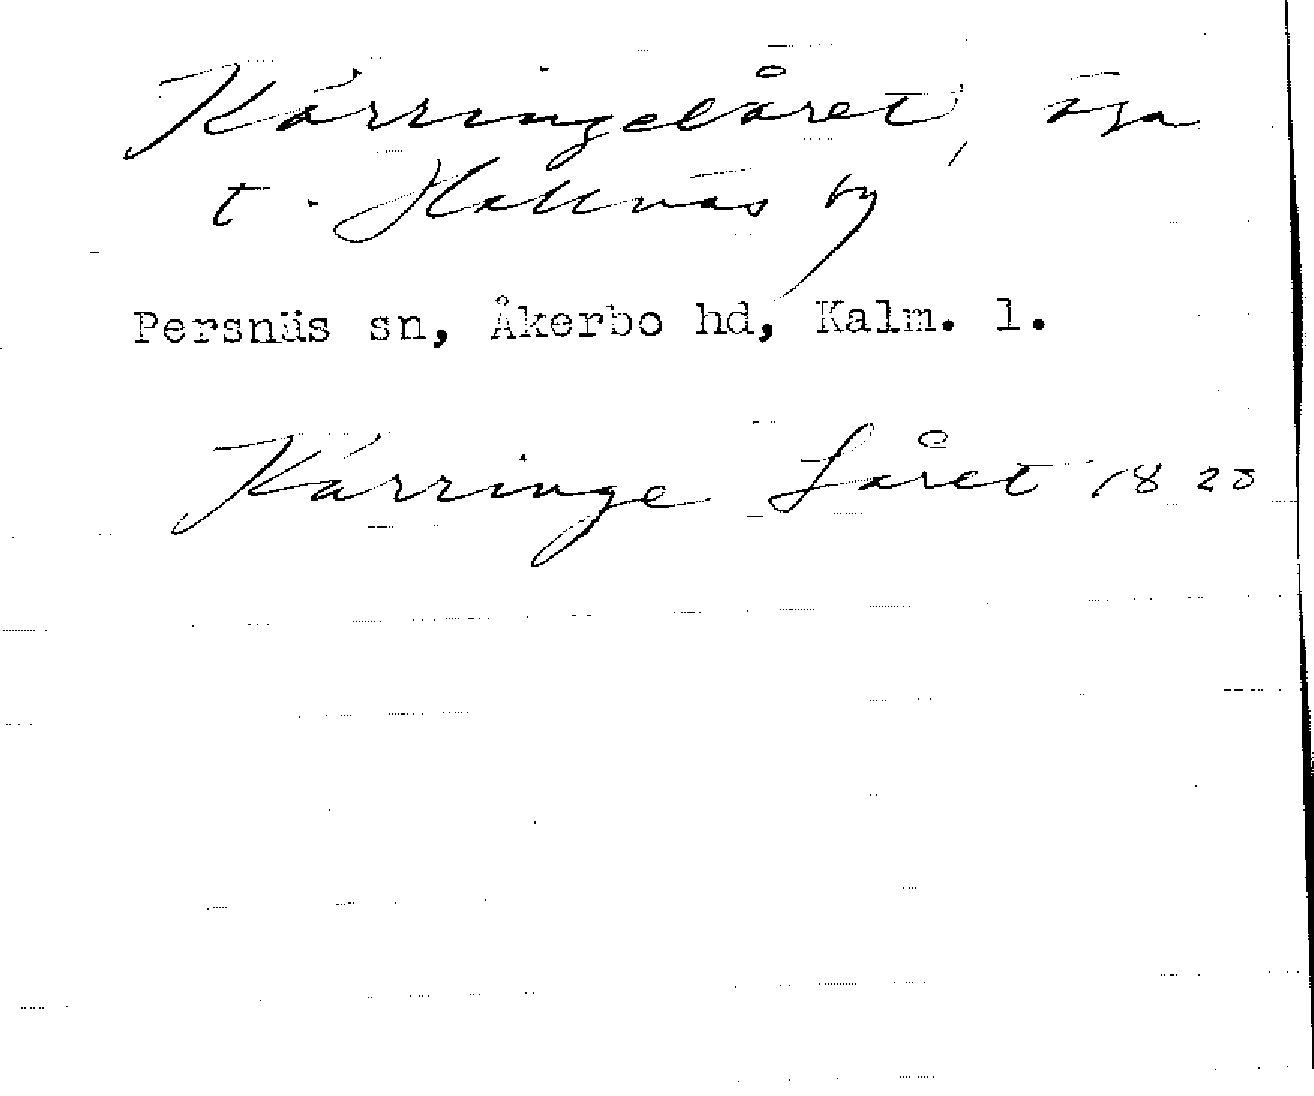 Kärringelåret, äga
t. Hallnäs by
Persnäs sn, Åkerbo hd, Kalm. l.
Kärringe Låret 1820